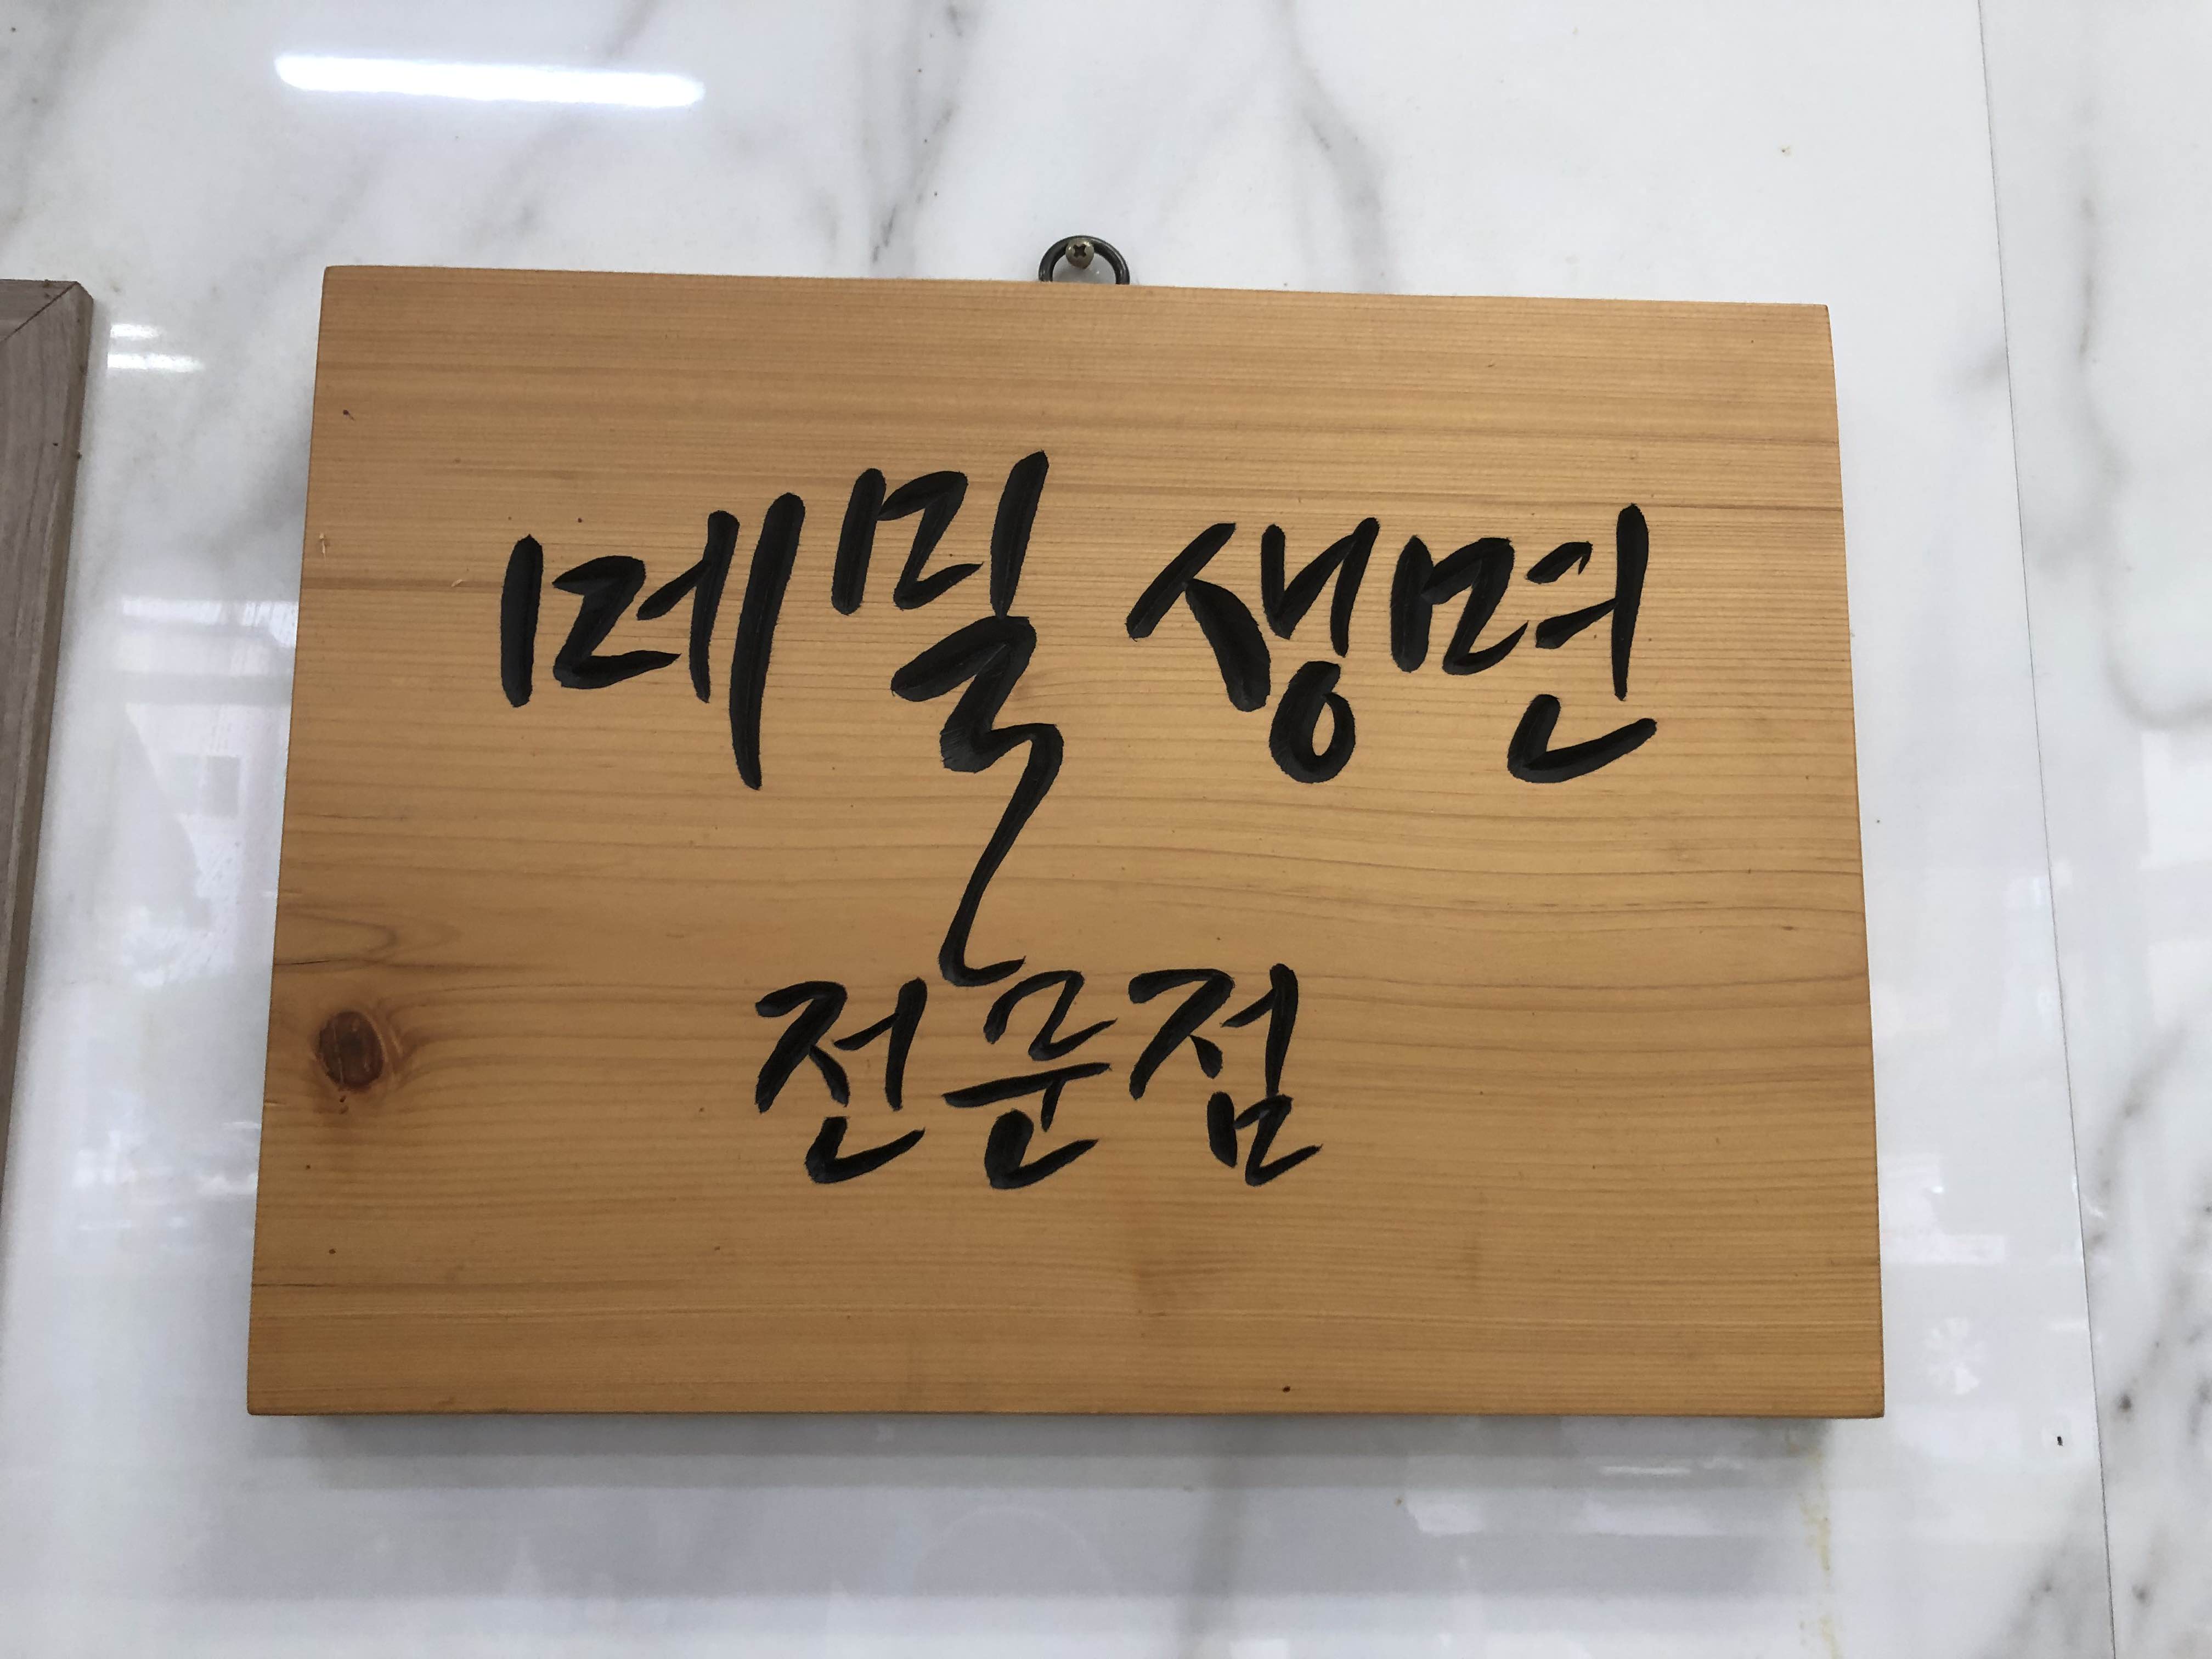 메밀 생면
전문점